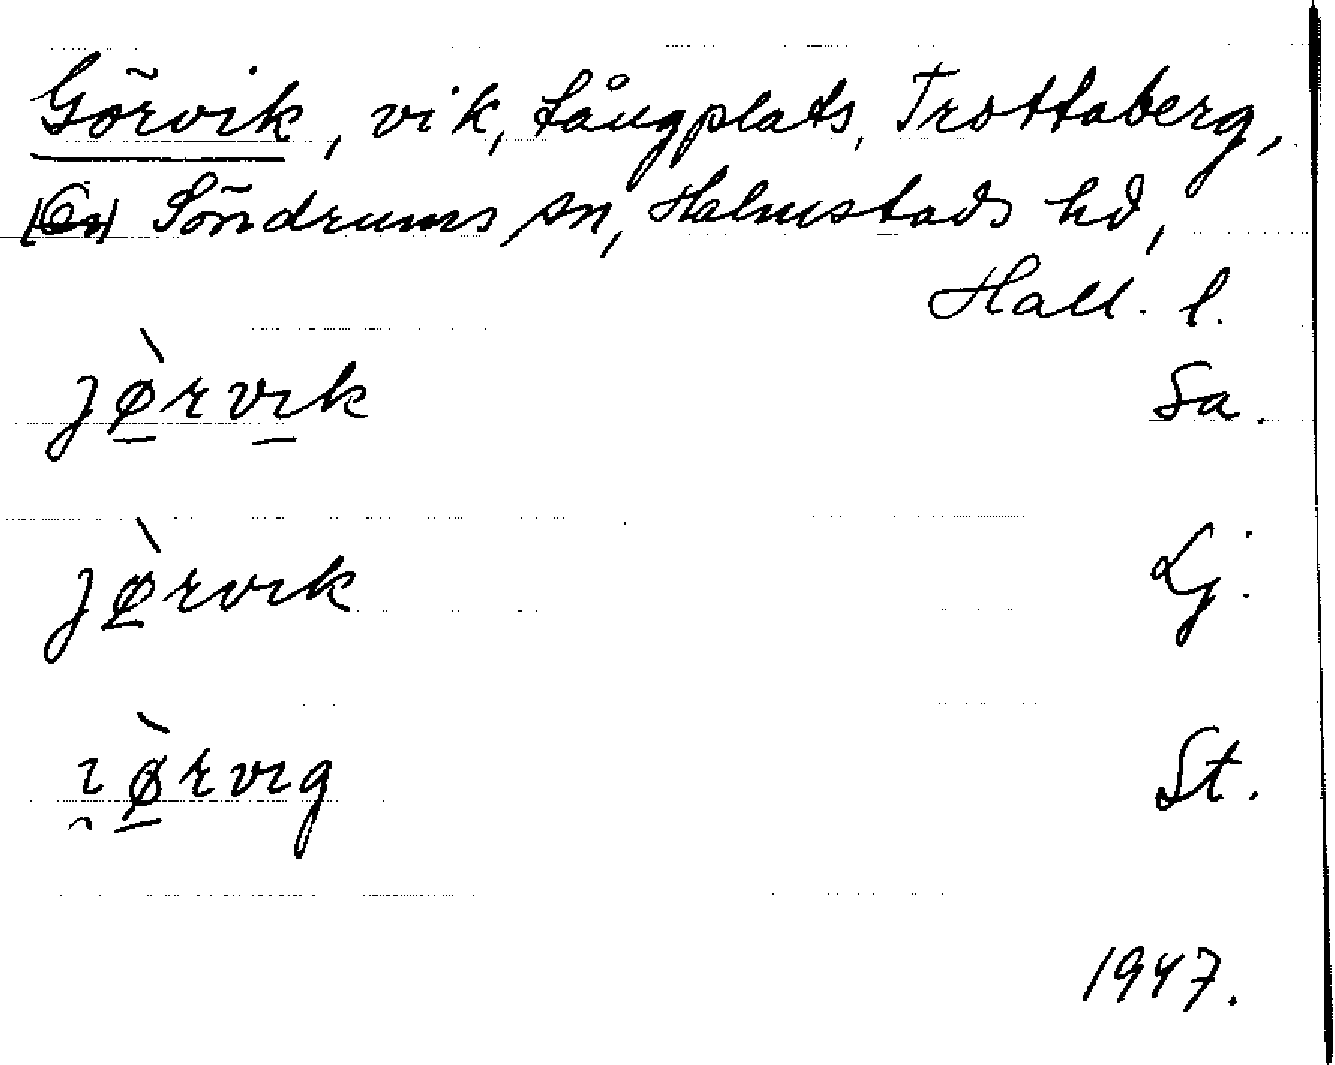 Görvik, vik, tångplats, Trottaberg,
Söndrums sn, Halmstads hd,
Hall. l.
jø̱̀rvı̱k Sa.
jø̱̀rvık Lj.
ı̯ø̱̀rvıg St.
1947.